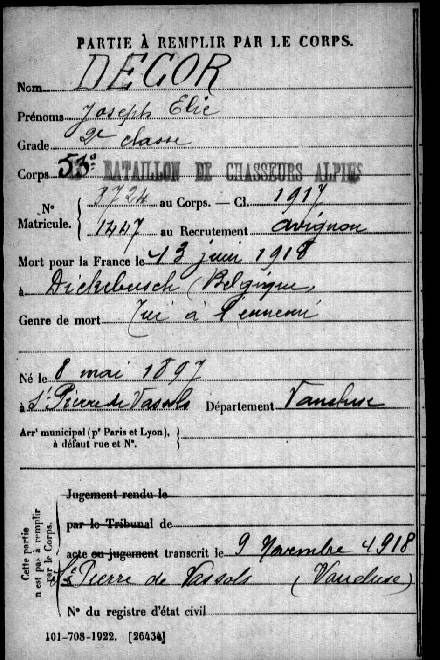 PARTIE À REMPLIR PAR LE CORPS.
Nom DECOR
Prénoms Joseph Elie
Grade 2e classe
Corps 53e BATAILLON DE CHASSEURS ALPINS
N° Matricule. { 3724 au Corps. — Cl. 1917
1447 au Recrutement Avignon
Mort pour la France le 13 juin 1918
à Dickebusch (Belgique)
Genre de mort Tué à l'ennemi
Né le 8 mai 1897
à St Pierre de Vassols Département Vaucluse
Arrt municipal (pr Paris et Lyon), à défaut rue et N°.
Cette partie n'est pas à remplir par le Corps.
Jugement rendu le
par le Tribunal de
acte ou jugement transcrit le 9 Novembre 1918
St Pierre de Vassols (Vaucluse)
N° du registre d'état civil
101-708-1922. [26434]